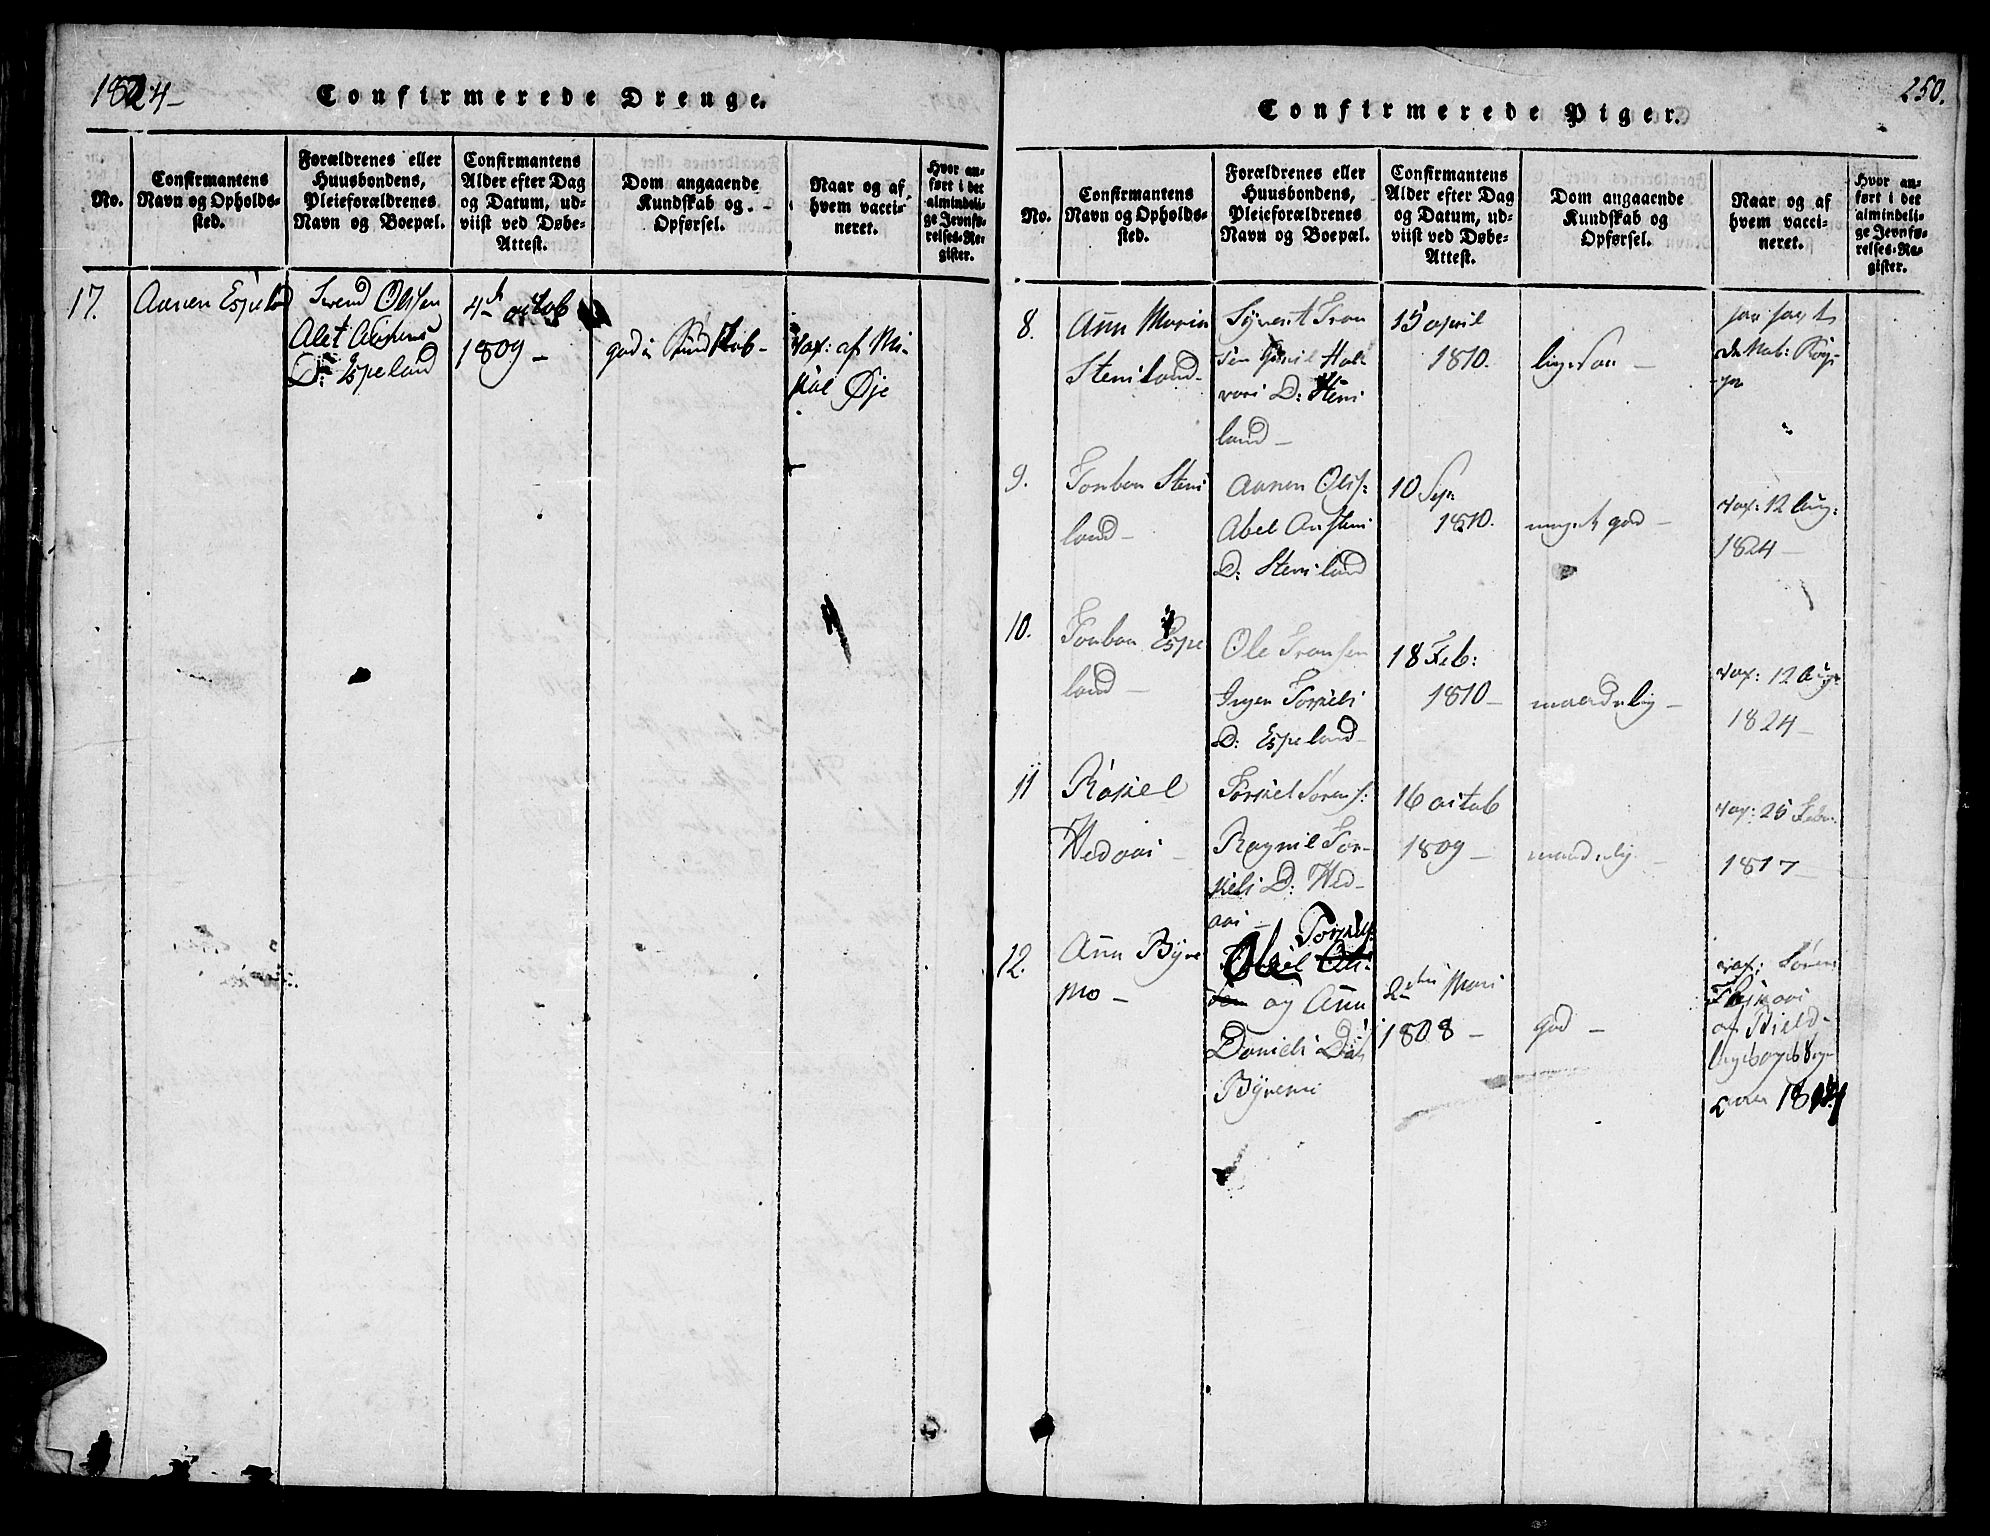 1824-
Confirmerede Drenge.
No.
Confirmantens
Navn og Opholds-
sted.
Forældrenes eller
Huusbondens,
Pleieforældrenes
Navn og Boepæl.
Confirmantens
Alder efter Dag
og Datum, ud-
viist ved Døbe-
Attest.
Dom angaaende
Kundskab og
Opførsel.
Naar og af
hvem vacci-
neret.
Hvor an-
ført i det
almindeli-
ge Jevnfø-
relses-Re-
gister.
17.
Aanen Espeland
Svend Olisen
Alet Aanens
D: Espeland
4de octob
1809-
god Kundskab-
vax: af Mi-
Øje
250.
Confirmerede Piger.
No.
Confirmantens
Navn og Opholds-
sted.
Forældrenes eller
Huusbondens,
Pleieforældrenes
Navn og Boepæl.
Confirmantens
Alder efter Dag
og Datum, ud-
viist ved Døbe-
Attest.
Dom angaaende
Kundskab og
Opførsel.
Naar og af
hvem vacci-
neret.
Hvor an-
ført i det
almindeli-
ge Jevnfø-
relses-Re-
gister.
8.
Ann Maria
Stensland-
Syvert Tron
sen Hal-
vors D: Stens
land-
15 april
1810.
ligesaa-
9.
Tonbor Stens
land-
Aanen Olis:
Abel
D: Stensland
10 Sep:
1810.
meget god-
vax: 12 Aug:
1824-
10.
Tonbor Espe
land-
Ole Tronsen
Inger Torkels
D: Espeland-
18 Feb:
1810-
maadelig-
vax: 12 Aug:
1824-
11
Rakel
Hedaas-
Torkel Sørens:
Ragnil Tor-
kels D: Hed-
aas-
16 octob
1809-
maadelig-
vax: 25 Febr.
1817-
12.
Ann Byre
mo-
Ole Torkels
og Ann
Daniels
Byremo
2den Mars
1808-
god-
vax: Søren
af